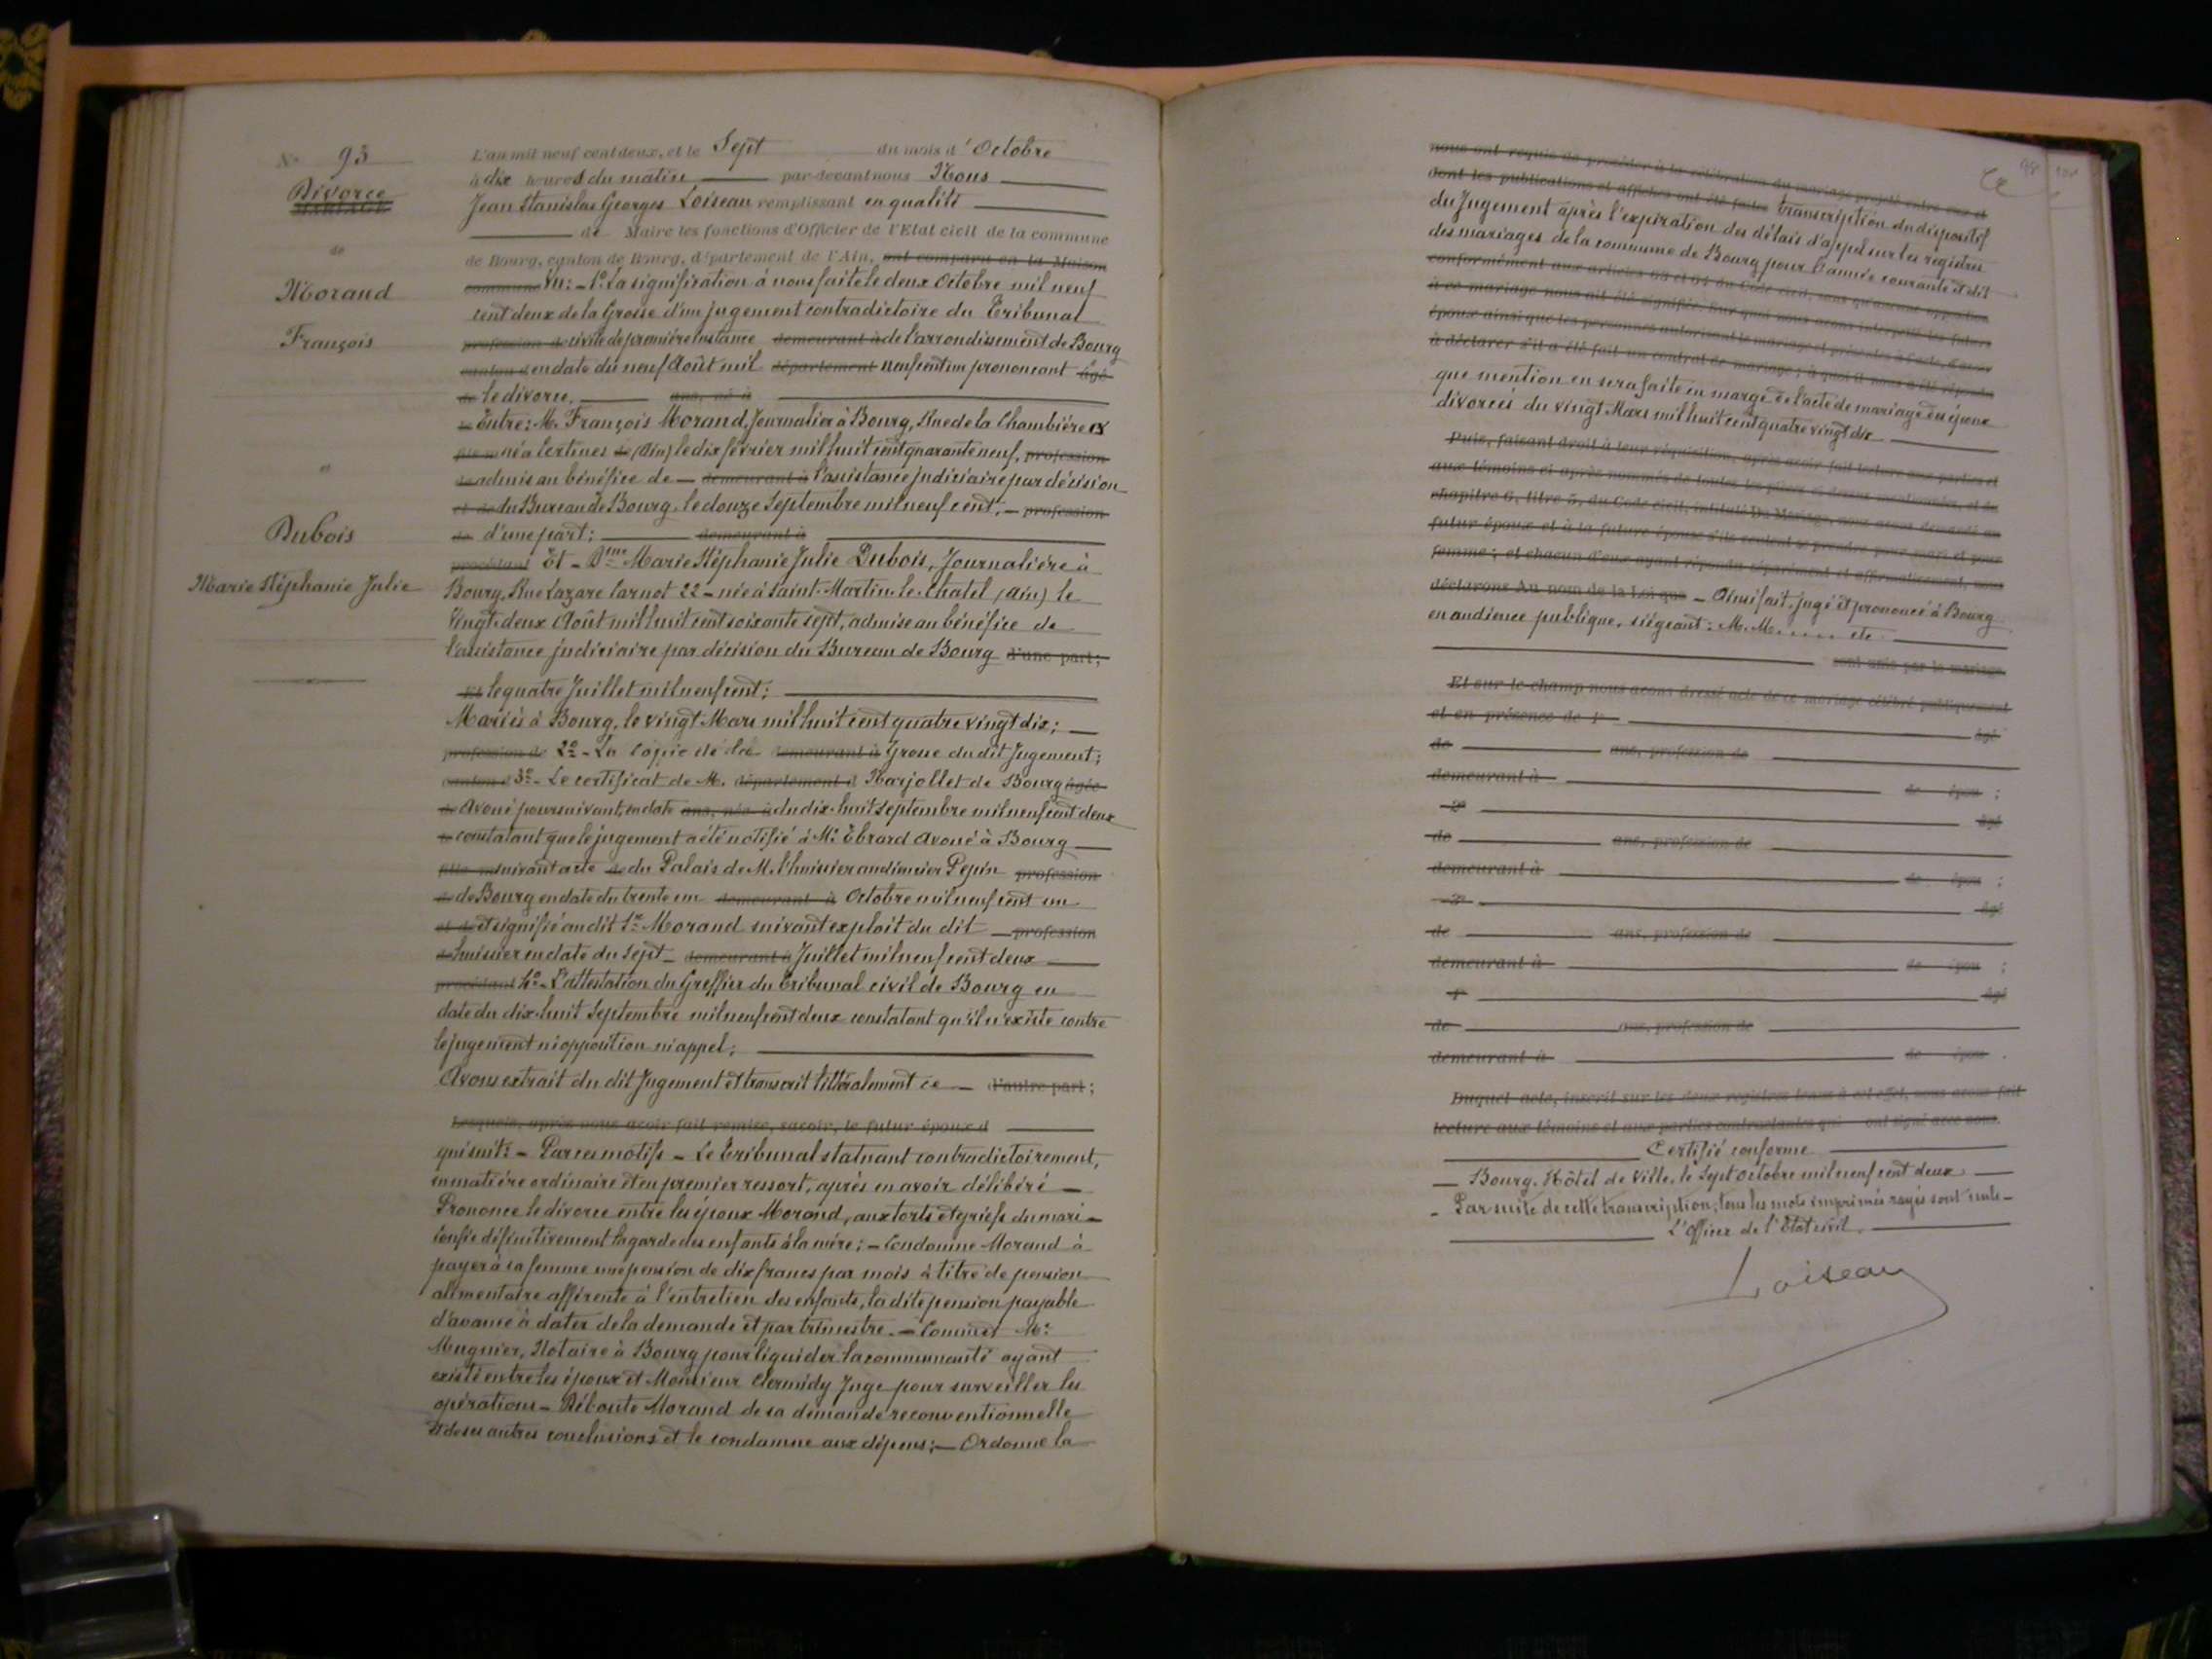 N° 95
Divorce
MARIAGE
de
Morand
François
et
Dubois
Marie Stéphanie Julie
L'an mil neuf cent deux, et le Sept du mois d'Octobre
à dix heures du matin par-devant nous Nous
Jean Stanislas Georges Loiseau remplissant en qualité
de Maire les fonctions d'Officier de l'Etat civil de la commune
de Bourg, canton de Bourg, département de l'Ain, ont comparu en la Maison
commune Vu: - 1° La signification à nous faite le deux Octobre mil neuf
cent deux de la Grosse d'un jugement contradictoire du Tribunal
profession de civil de première Instance demeurant à de l'arrondissement de Bourg
canton d en date du neuf Août mil département neuf cent un prononçant âgé
de le divorce, ans, né à
Entre: M. François Morand, Journalier à Bourg, Rue de la Chambière
né à Certines de (Ain) le dix février mil huit cent quarante neuf, profession
de admis au bénéfice de - demeurant à l'assistance judiciaire par décision
et de du Bureau de Bourg, le douze Septembre mil neuf cent; - profession
de d'une part; demeurant à
procédant Et - Dme Marie Stéphanie Julie Dubois, Journalière à
Bourg, Rue Lazare Carnot 22 - née à Saint-Martin-le-Chatel (Ain) le
Vingt-deux Août mil huit cent soixante sept, admise au bénéfice de
l'assistance judiciaire par décision du Bureau de Bourg d'une part;
Et le quatre Juillet mil neuf cent;
Mariés à Bourg, le vingt Mars mil huit cent quatre vingt dix;
profession de 2° - La copie de la demeurant à Grosse du dit Jugement;
canton d 3° - Le certificat de M. département d Narjollet de Bourg âgée
de Avoué poursuivant, en date ans, née à du dix-huit Septembre mil neuf cent deux
constatant que le jugement a été notifié à Me Ebrard Avoué à Bourg
fille m suivant acte de du Palais de M. l'huissier audiencier Pepin profession
de de Bourg en date du trente un demeurant à Octobre mil neuf cent un
et de et signifié au dit Sr Morand suivant exploit du dit profession
de huissier en date du Sept demeurant à Juillet mil neuf cent deux
procédant 4° - L'attestation du Greffier du Tribunal civil de Bourg en
date du dix-huit Septembre mil neuf cent deux constatant qu'il n'existe contre
le jugement ni opposition ni appel;
Avons extrait du dit Jugement et transcrit littéralement ce - d'autre part;
Lesquels, après nous avoir fait remise, savoir, le futur époux d
qui suit: - Par ces motifs - Le Tribunal statuant contradictoirement,
en matière ordinaire et en premier ressort, après en avoir délibéré -
Prononce le divorce entre les époux Morand, aux torts et griefs du mari -
Confie définitivement la garde des enfants à la mère; - Condamne Morand à
payer à sa femme une pension de dix francs par mois à titre de pension
alimentaire afférente à l'entretien des enfants, la dite pension payable
d'avance à dater de la demande et par trimestre. - Commet Me
Mugnier, Notaire à Bourg pour liquider la communauté ayant
existé entre les époux et Monsieur Clermidy Juge pour surveiller les
opérations - Déboute Morand de sa demande reconventionnelle
et de ses autres conclusions et le condamne aux dépens; - Ordonne la
nous ont requis de procéder à la célébration du mariage projeté entre eux et
dont les publications et affiches ont été faites transcription du dispositif
du Jugement après l'expiration des délais d'appel sur les registres
des mariages de la commune de Bourg pour l'année courante et dit
conformément aux articles 63 et 64 du Code civil, sans qu'aucune opposition
à ce mariage nous ait été signifiée. Sur quoi nous avons interpellé les futurs
époux ainsi que les personnes autorisant le mariage et présentes à l'acte, d'avoir
à déclarer s'il a été fait un contrat de mariage; à quoi il nous a été répondu
que mention en sera faite en marge de l'acte de mariage des époux
divorcés du vingt Mars mil huit cent quatre vingt dix
Puis, faisant droit à leur réquisition, après avoir fait lecture aux parties et
aux témoins ci après nommés de toutes les pièces ci dessus mentionnées, et du
chapitre 6, titre 5, du Code civil, intitulé Du Mariage, nous avons demandé au
futur époux et à la future épouse s'ils veulent se prendre pour mari et pour
femme; et chacun d'eux ayant répondu séparément et affirmativement, nous
déclarons Au nom de la Loi que - Ainsi fait, jugé et prononcé à Bourg
en audience publique, siégeant: M. M. .... etc
sont unis par le mariage.
Et sur le champ nous avons dressé acte de ce mariage célébré publiquement
et en présence de 1° âgé
de ans, profession de
demeurant à de épou ;
2° âgé
de ans, profession de
demeurant à de épou ;
3° âgé
de ans, profession de
demeurant à de épou ;
4° âgé
de ans, profession de
demeurant à de épou .
Duquel acte, inscrit sur les deux registres tenus à cet effet, nous avons fait
lecture aux témoins et aux parties contractantes qui ont signé avec nous.
Certifié conforme
Bourg, Hôtel de Ville, le Sept Octobre mil neuf cent deux
- Par suite de cette transcription, tous les mots imprimés rayés sont nuls -
L'Officier de l'Etat civil.
Loiseau